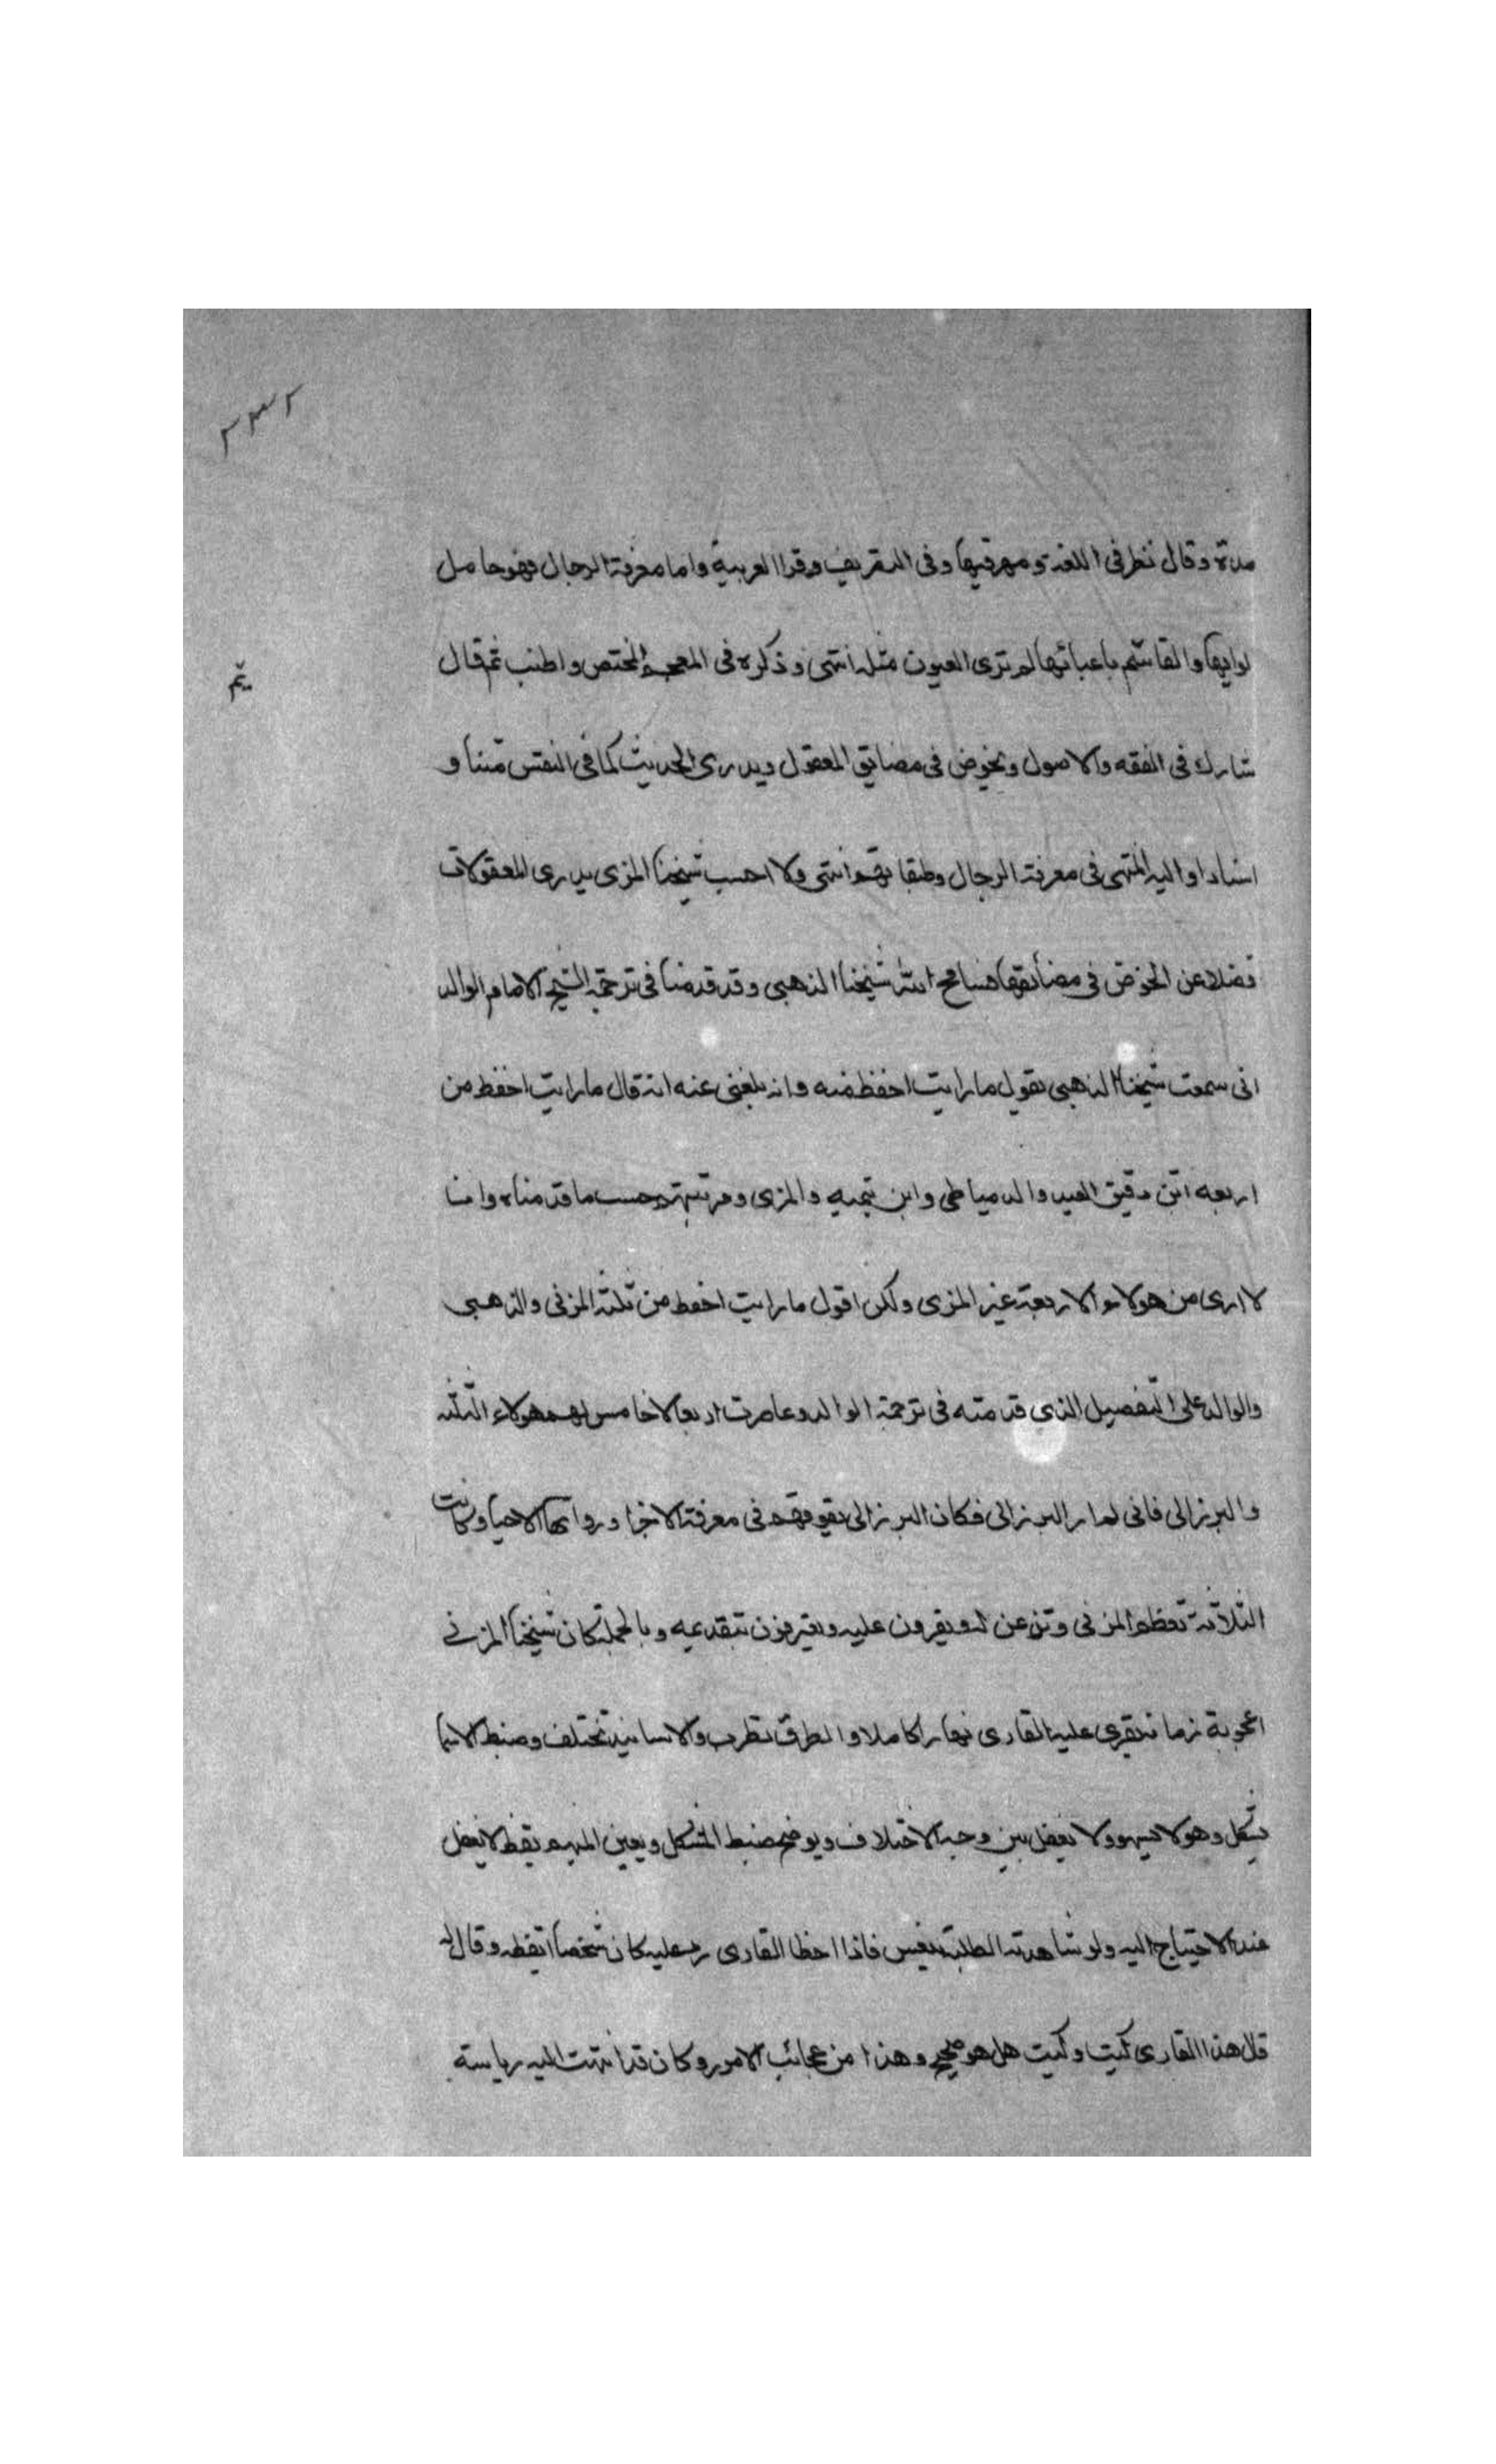 ٢٣٣
مدة وقال نظر فى اللغة ومهر فيها وفى التصريف وقرا العربية واما معرفة الرجال فهو حامل
لوايها والقائم باعبائها لم ترى العيون مثله انتهى وذكره فى المعجم المختص واطنب ثم قال
شارك فى الفقه والاصول ويخوض فى مضايق المعقول ويدرى الحديث كما فى النفس متنا و
اسنادا واليه المنتهى فى معرفة الرجال وطبقاتهم انتهى ولا احسب شيخنا المزى يدرى المعقولات
فضلا عن الخوض فى مضائقها فسامح الله شيخنا الذهبى وقد قدمنا فى ترجمة الشيخ الامام الوالد
انى سمعت شيخنا الذهبى يقول ما رايت احفظ منه وانه بلغنى عنه انه قال ما رايت احفظ من
اربعه ابن دقيق العيد والدمياطى وابن تيميه والمزى ومرتبتهم حسب ما قدمناه وانا
لا ارى من هولاء الاربعة غير المزى ولكن اقول ما رايت احفظ من ثلثة المزنى والذهبى
والوالد على التفصيل الذى قدمته فى ترجمة الوالد وعاصرت اربعا لا خامس لهم هولاء الثلثه
والبرزالى فانى لم ار البرزالى فكان البرزالى يفوقهم فى معرفة الاجزا ورواتها الاحيا وكانت
الثلاثة تعظم المزنى وتذعن له ويقرون عليه ويعترفون بتقديمه وبالجملة كان شيخنا المزنى
اعجوبة زمانه يقرى عليه القارى نهارا كاملا والطرق تظرب والاسانيد تختلف وضبط الاسما
يشكل وهو لا يسهو ولا يغفل يبين وجه الاختلاف ويوضح ضبط المشكل ويعين المبهم يقظ لا يغفل
عند الاحتياج اليه ولو شاهدته الطلبة ينعس فاذا اخطا القارى رد عليه كان شخصا ايقظه وقال له
قال هذا القارى كيت وكيت هل هو صحيح وهذا من عجائب الامور وكان قد انتهت اليه رياسة